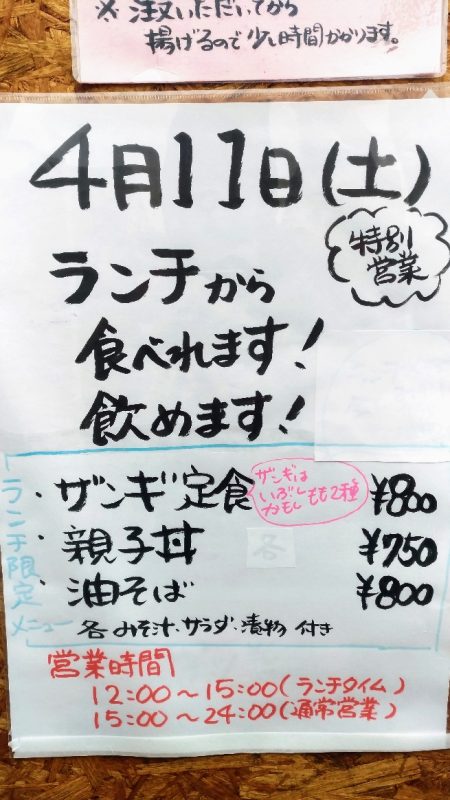 ※ 注文いただいてから
揚げるので少し時間がかかります。
4月11日(土)
特別
営業
ランチから
食べれます!
飲めます!
ランチ限定
メニュー
・ザンギ定食
ザンギは
いぶし
かもし
もも2種
¥800
・親子丼 ¥750
・油そば ¥800
各みそ汁、サラダ、漬物 付き
営業時間
12:00〜15:00(ランチタイム)
15:00〜24:00(通常営業)